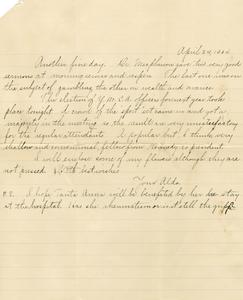 April 24, 1904
Another fine day. Dr. Macpherson gave two very good
sermons at morning service and vespers. The last one was on
the subject of gambling the other on wealth and
The election of Y.M.C.A. officers for next year took
place tonight. A crowd of the sport set ran in and got a
majority in the meeting so the result are very unsatisfactory
for the regular attendants. A popular but I think very
shallow and conventional fellow from Kennedy is president.
I will enclose some of my films although they are
not passed. With best wishes
Your Aldo.
P.S. I hope Tanta Anna will be benefited by her stay
at the hospital. Has she rheumatism or is it still the grippe